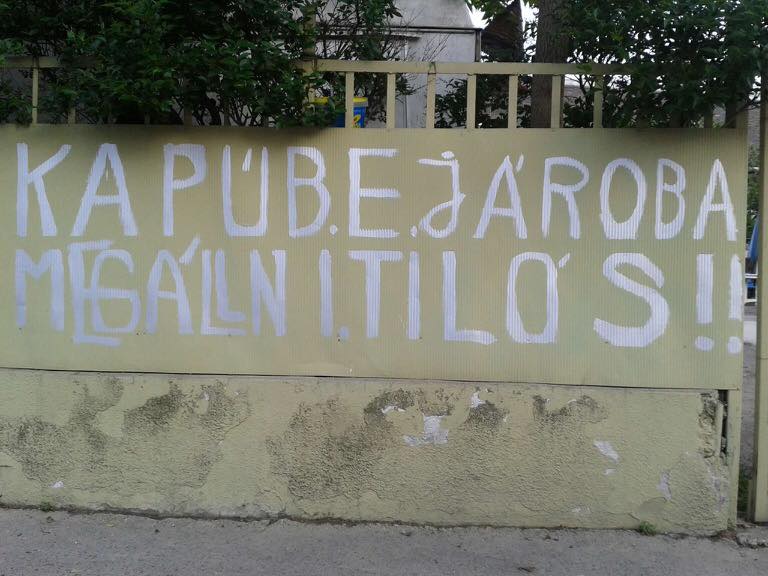 KAPÚB.E.JÁROBA
MEGÁLLNI.TILÓS!!